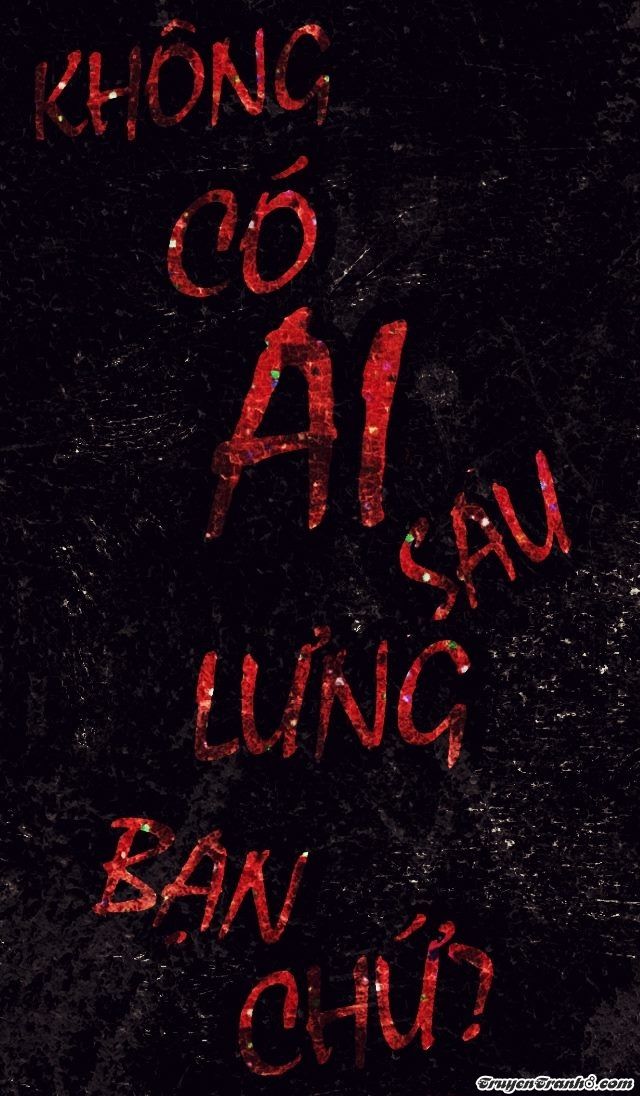 KHÔNG
CÓ
AI
SAU
LƯNG
BẠN
CHỨ?
TruyenTranh8.com